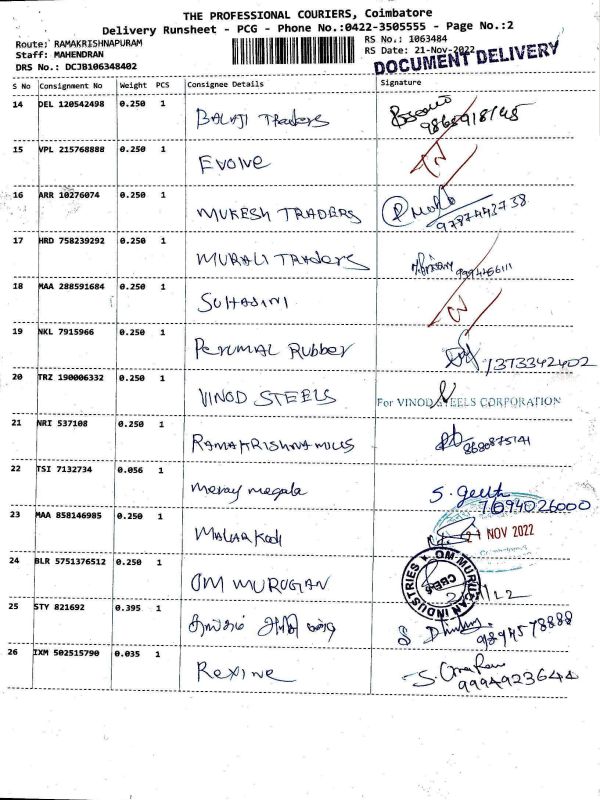 THE PROFESSIONAL COURIERS, Coimbatore
Delivery Runsheet - PCG - Phone No.:0422-3505555 - Page No.:2
Route: RAMAKRISHNAPURAM
RS No.: 1063484
Staff: MAHENDRAN
RS Date: 21-Nov-2022
DRS No.: DCJB106348402
DOCUMENT DELIVERY
S No Consignment No Weight PCS Consignee Details Signature
14 DEL 120542498 0.250 1 BALAJI Traders
15 VPL 215768888 0.250 1 Evolve
16 ARR 10276074 0.250 1 MUKESH TRADERS 9787443738
17 HRD 758239292 0.250 1 MURALI TRADers
18 MAA 288591684 0.250 1 SUHASINI
19 NKL 7915966 0.250 1 Perumal Rubber
20 TRZ 190006332 0.250 1 VINOD STEELS For VINOD STEELS CORPORATION
21 NRI 537108 0.250 1 RAMAKRISHNA MILLS 8680875141
22 TSI 7132734 0.056 1 meray megala S. geeth 7094026000
23 MAA 858146985 0.250 1 Malarkodi 21 NOV 2022
24 BLR 5751376512 0.250 1 OM MURUGAN OM MURUGAN INDUSTRIES CBE-6
25 STY 821692 0.395 1 9894578888
26 IXM 502515790 0.035 1 Rexine 9994923644